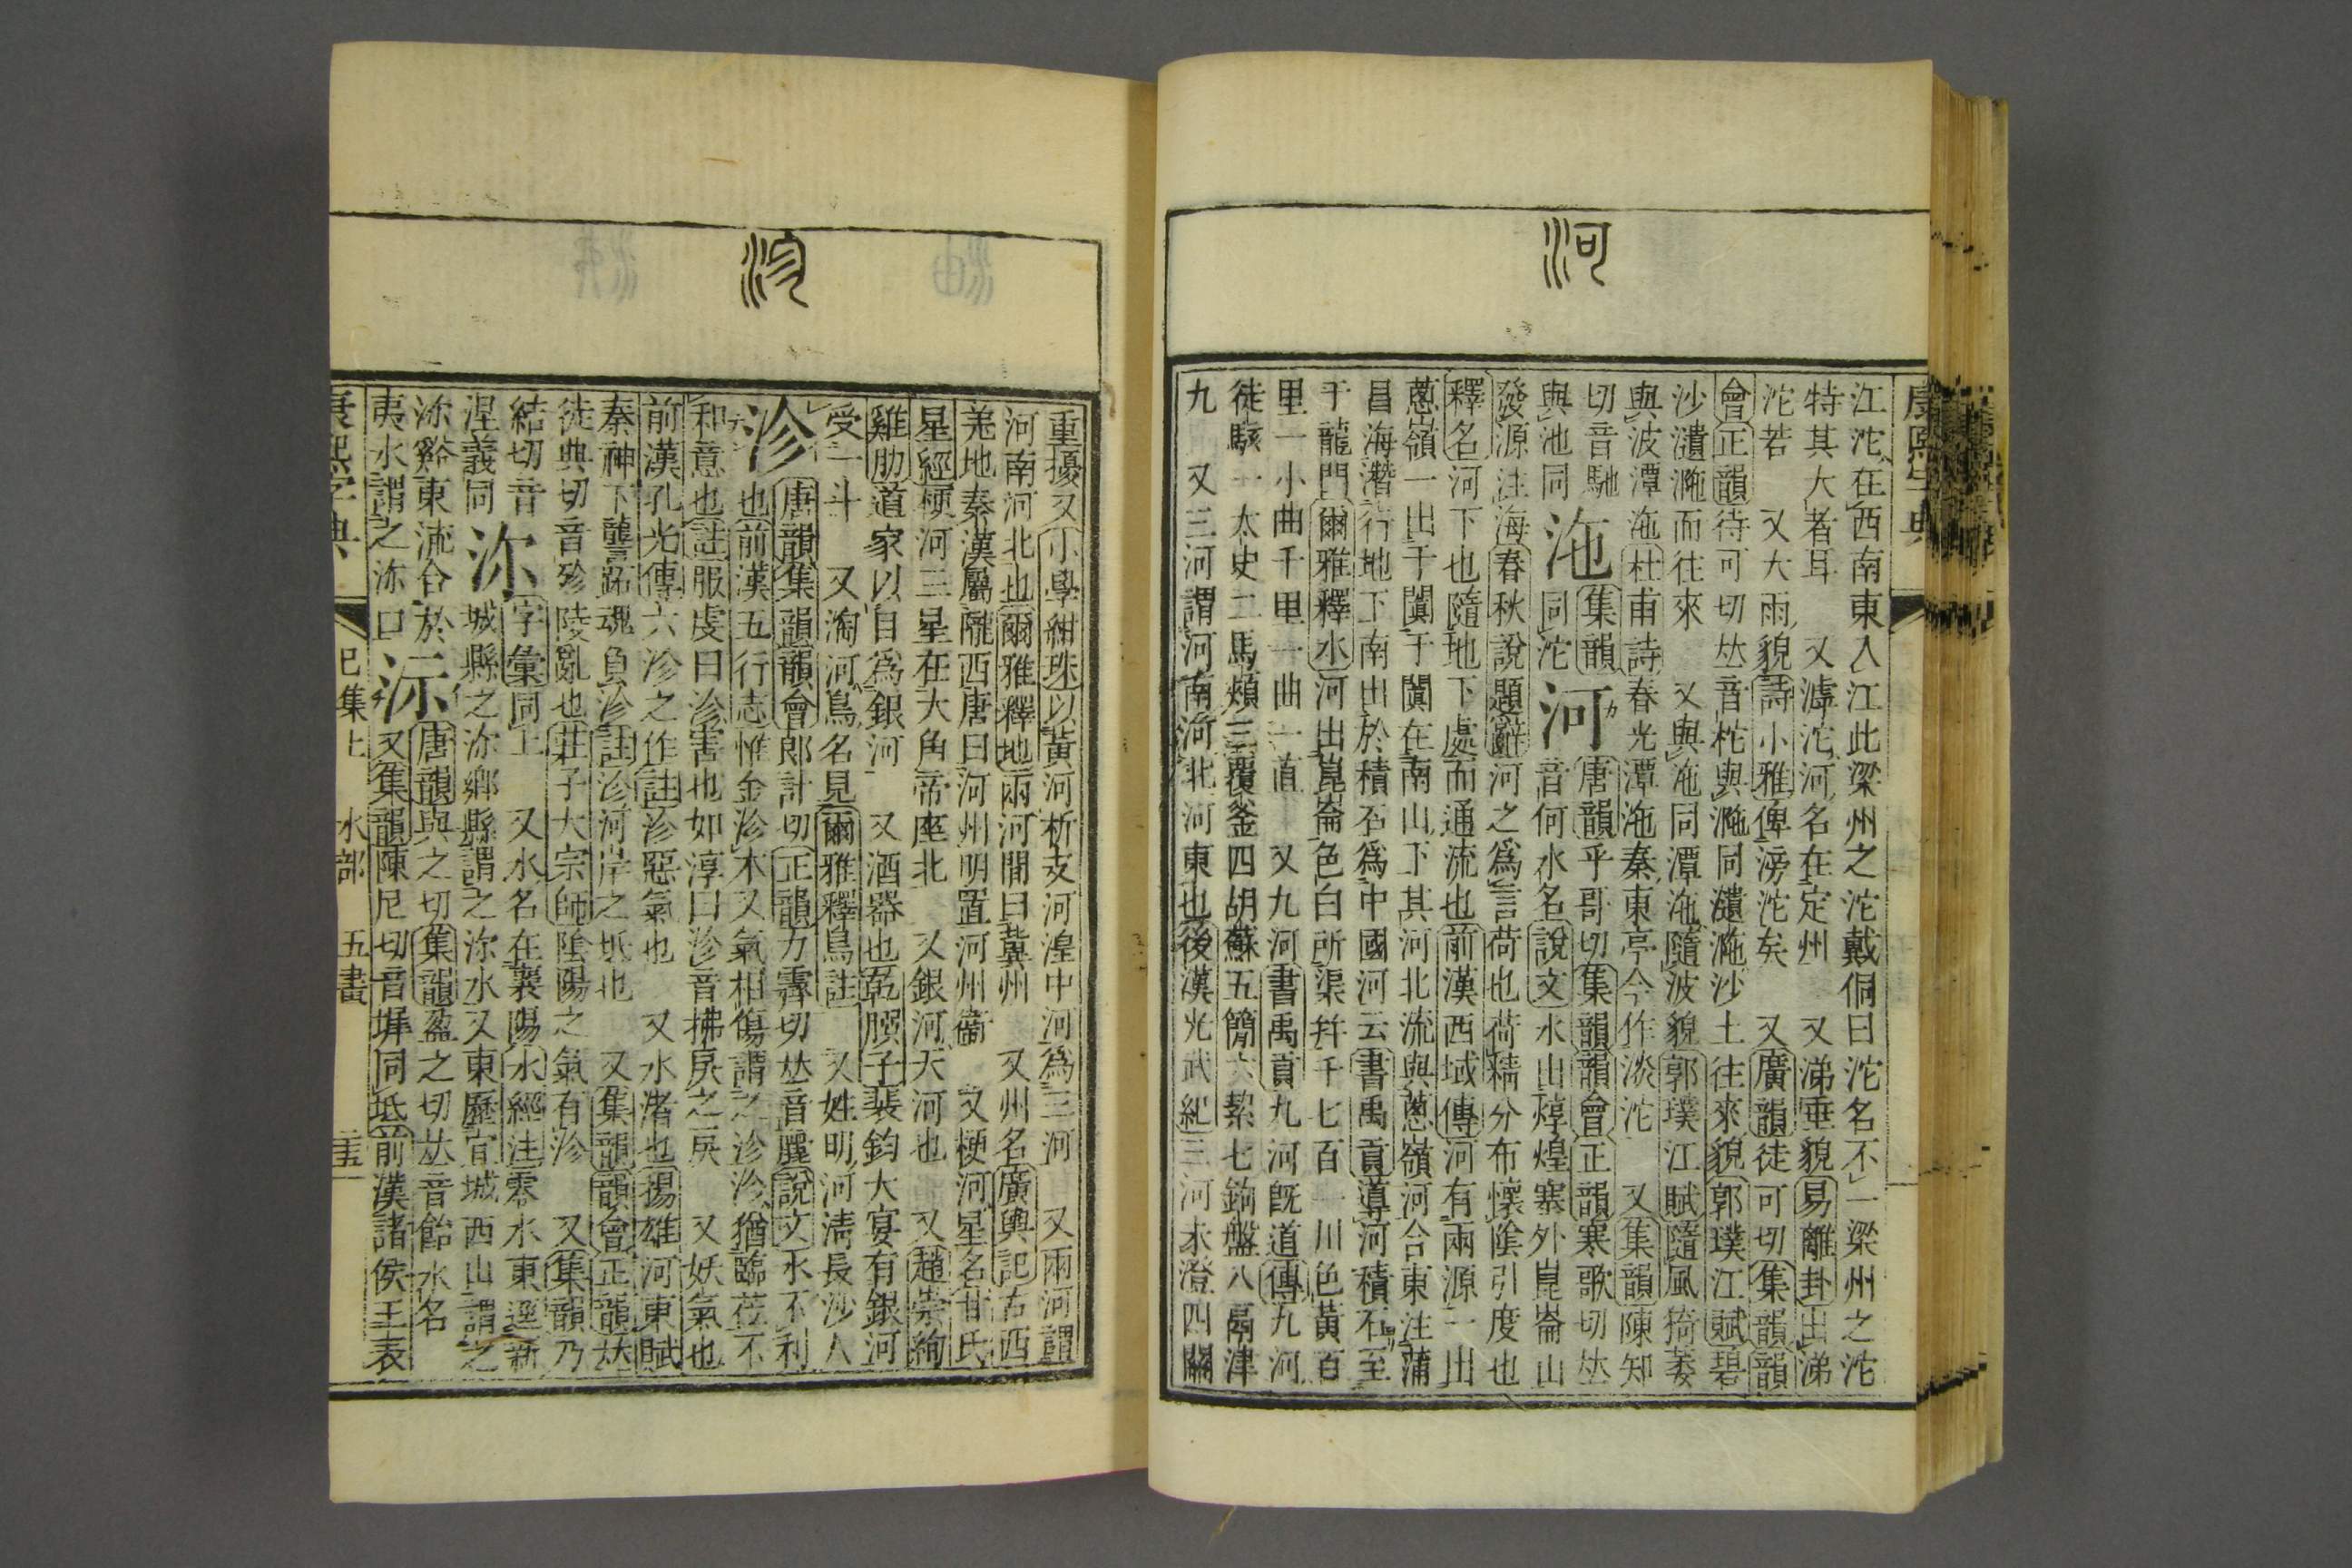 河
康熙字典
江沱在西南東入江此梁州之沱戴侗曰沱名不一梁州之沱
特其大者耳 又滹沱河名在定州 又涕垂貌易離卦出涕
沱若 又大雨貌詩小雅俾滂沱矣 又廣韻徒可切集韻韻
會正韻待可切𠀤音柁與沲同㵮沲沙土往來貌郭璞江賦碧
沙㵮沲而往來 又與沲同潭沲隨波貌郭璞江賦隨風猗萎
與波潭沲杜甫詩春光潭沲秦東亭今作淡沱 又集韻陳知
切音馳 沲集韻同沱 河唐韻乎哥切集韻韻會正韻寒歌切𠀤
與池同
音何水名說文水出焞煌塞外崑崙山
發源注海春秋說題辭河之爲言荷也荷精分布懷陰引度也
釋名河下也隨地下處而通流也前漢西域傳河有兩源一出
蔥嶺一出于闐于闐在南山下其河北流與蔥嶺河合東注蒲
昌海潛行地下南出於積石爲中國河云書禹貢導河積石至
于龍門爾雅釋水河出崑崙色白所渠幷千七百一川色黃百
里一小曲千里一曲一直 又九河書禹貢九河旣道傳九河
徒駭一太史二馬頰三覆釜四胡蘇五簡六絜七鉤盤八鬲津
九 又三河謂河南河北河東也後漢光武紀三河未澄四關
沴
重擾又小學紺珠以黃河析支河湟中河爲三河 又兩河謂
河南河北也爾雅釋地兩河閒曰冀州 又州名廣輿記古西
羌地秦漢屬隴西唐曰河州明置河州衞 又梗河星名甘氏
星經梗河三星在大角帝座北 又銀河天河也 又趙崇絢
雞肋道家以目爲銀河 又酒器也乾𦠆子裴鈞大宴有銀河
受一斗 又淘河鳥名見爾雅釋鳥註 又姓明河淸長沙人
沴唐韻集韻韻會郎計切正韻力霽切𠀤音麗說文水不利
也前漢五行志惟金沴木又氣相傷謂之沴沴猶臨莅不
和意也註服虔曰沴害也如淳曰沴音拂戾之戾 又妖氣也
前漢孔光傳六沴之作註沴惡氣也 又水渚也揚雄河東賦
秦神下讋跖魂負沴註沴河岸之坻也 又集韻韻會正韻𠀤
徒典切音殄陵亂也莊子大宗師陰陽之氣有沴 又集韻乃
結切音涅義同 沵字彙同上 又水名在襄陽水經注零水東逕新
城縣之沵鄕縣謂之沵水又東歷宜城西山謂之
沵谿東流合於夷水謂之沵口 沶唐韻與之切集韻盈之切𠀤音飴水名
又集韻陳尼切音墀同坻前漢諸侯王表
康熙字典 巳集上 水部 五畫